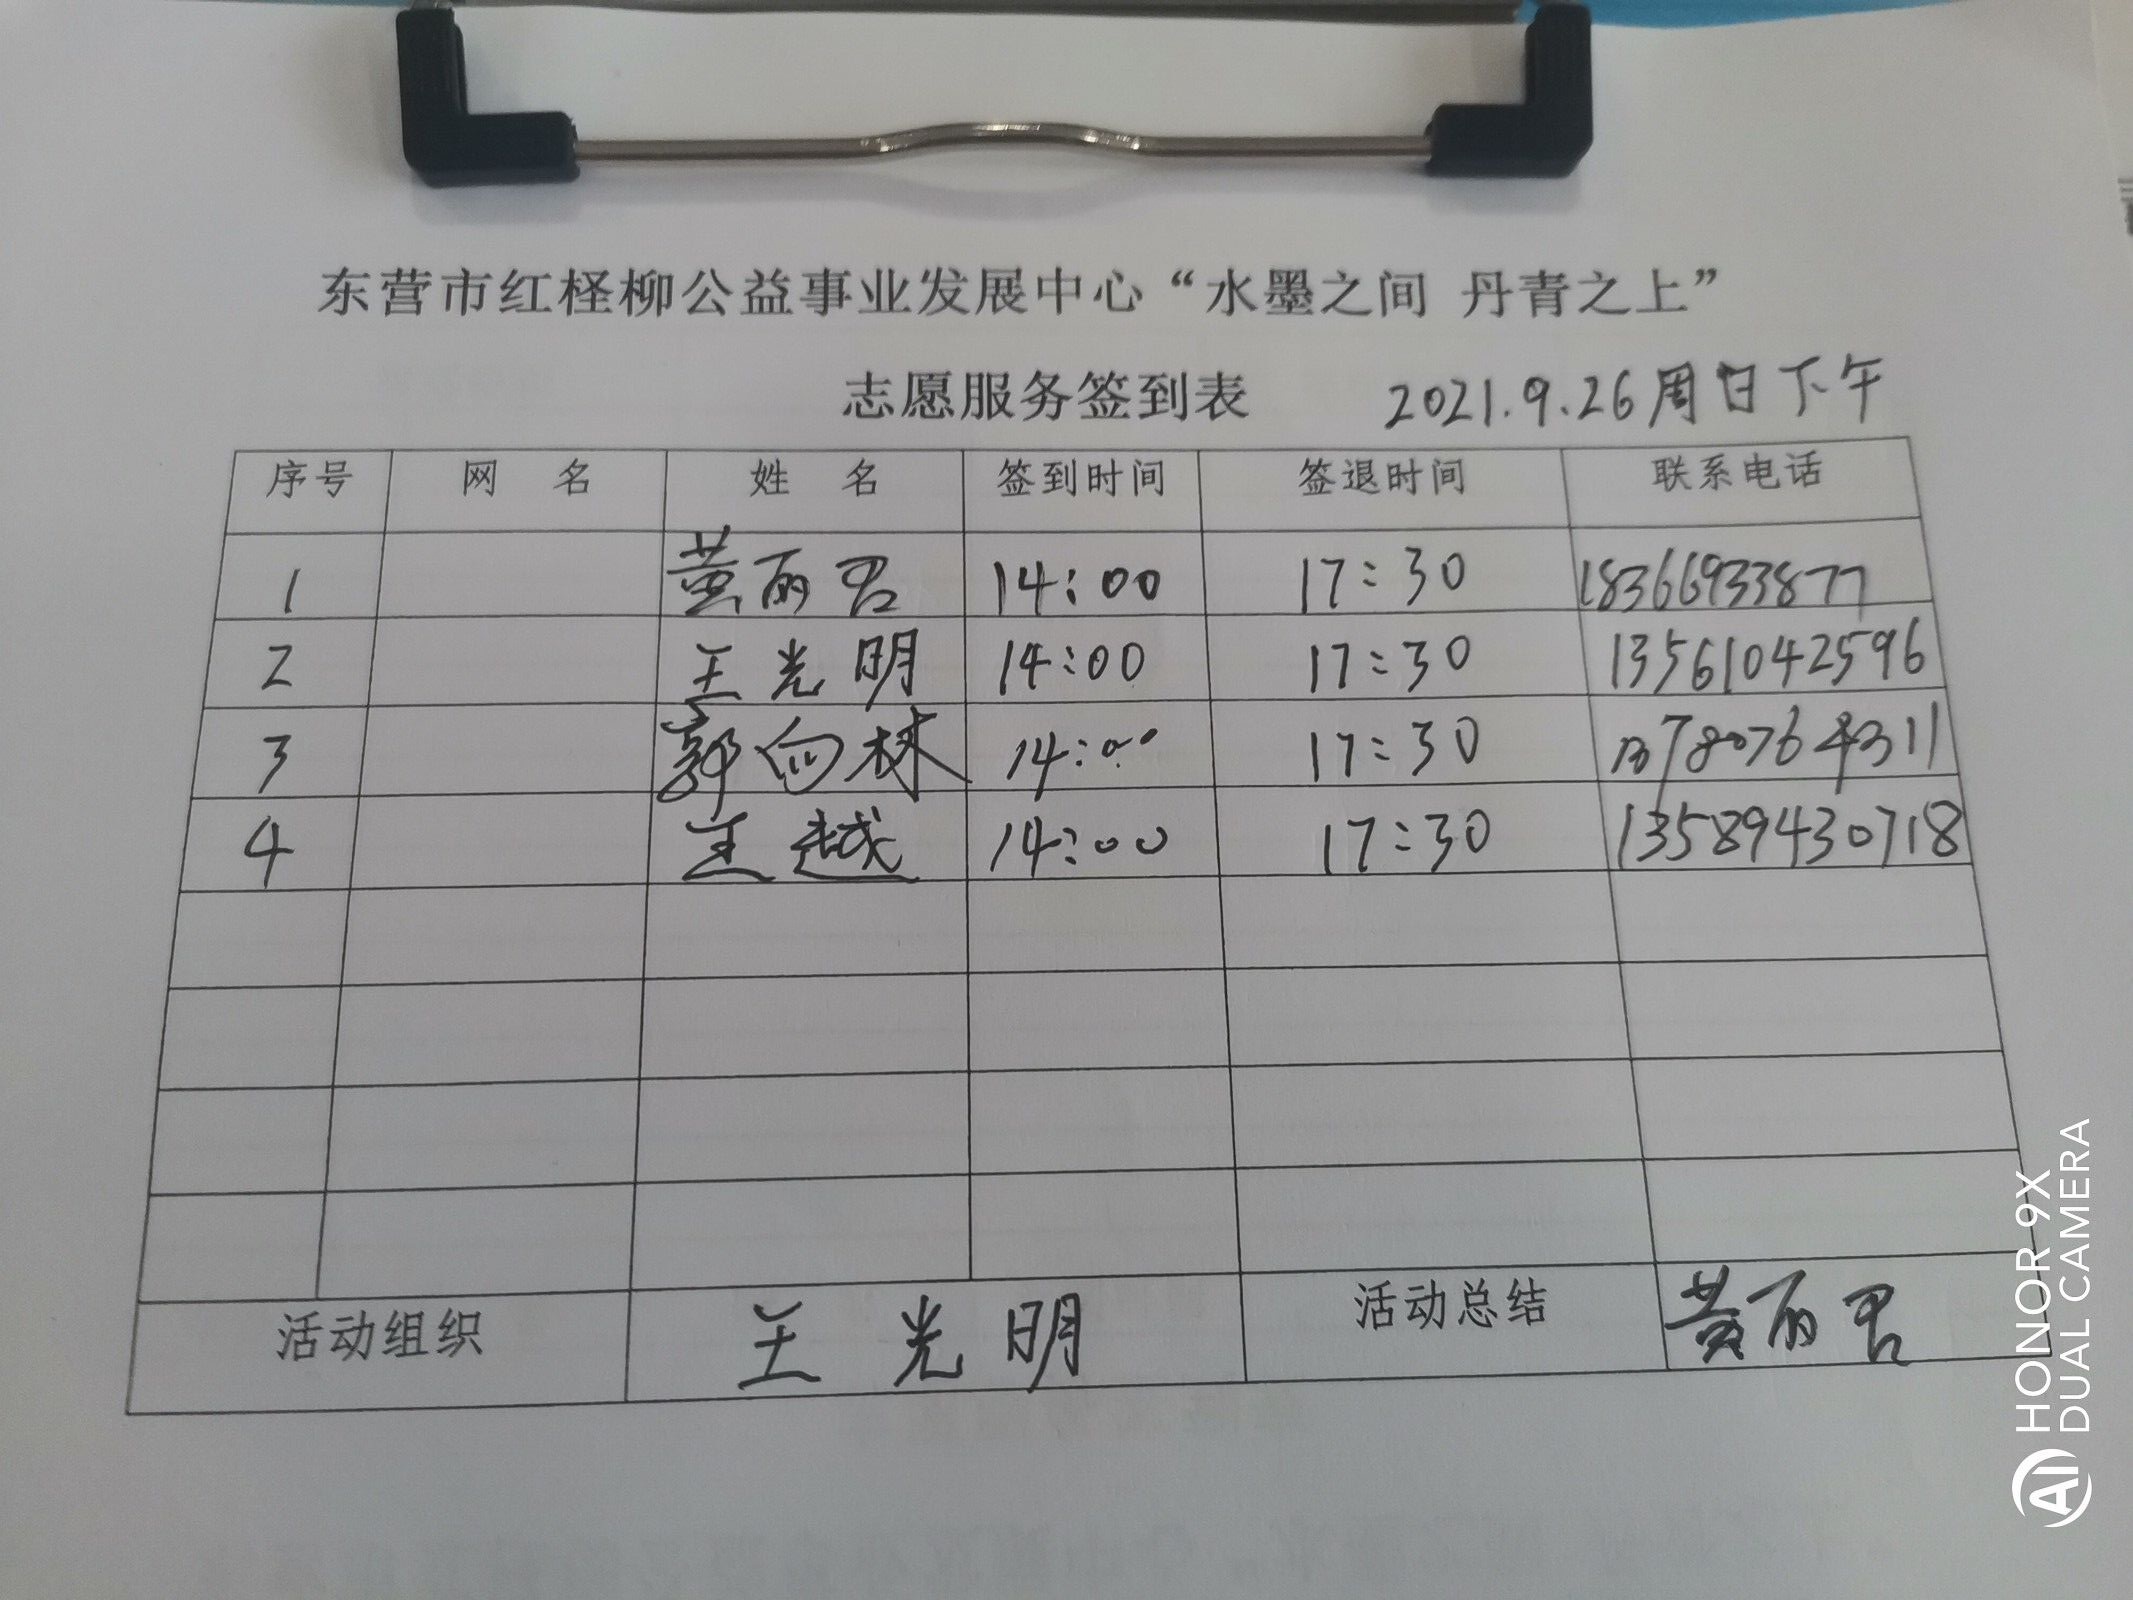 东营市红柽柳公益事业发展中心“水墨之间 丹青之上”
志愿服务签到表 2021.9.26周日下午
序号 网 名 姓 名 签到时间 签退时间 联系电话
1 黄丽君 14:00 17:30 18366933877
2 王光明 14:00 17:30 13561042596
3 郭向林 14:00 17:30 13780764311
4 王越 14:00 17:30 13589430718
活动组织 王光明 活动总结 黄丽君
HONOR 9X
DUAL CAMERA
AI